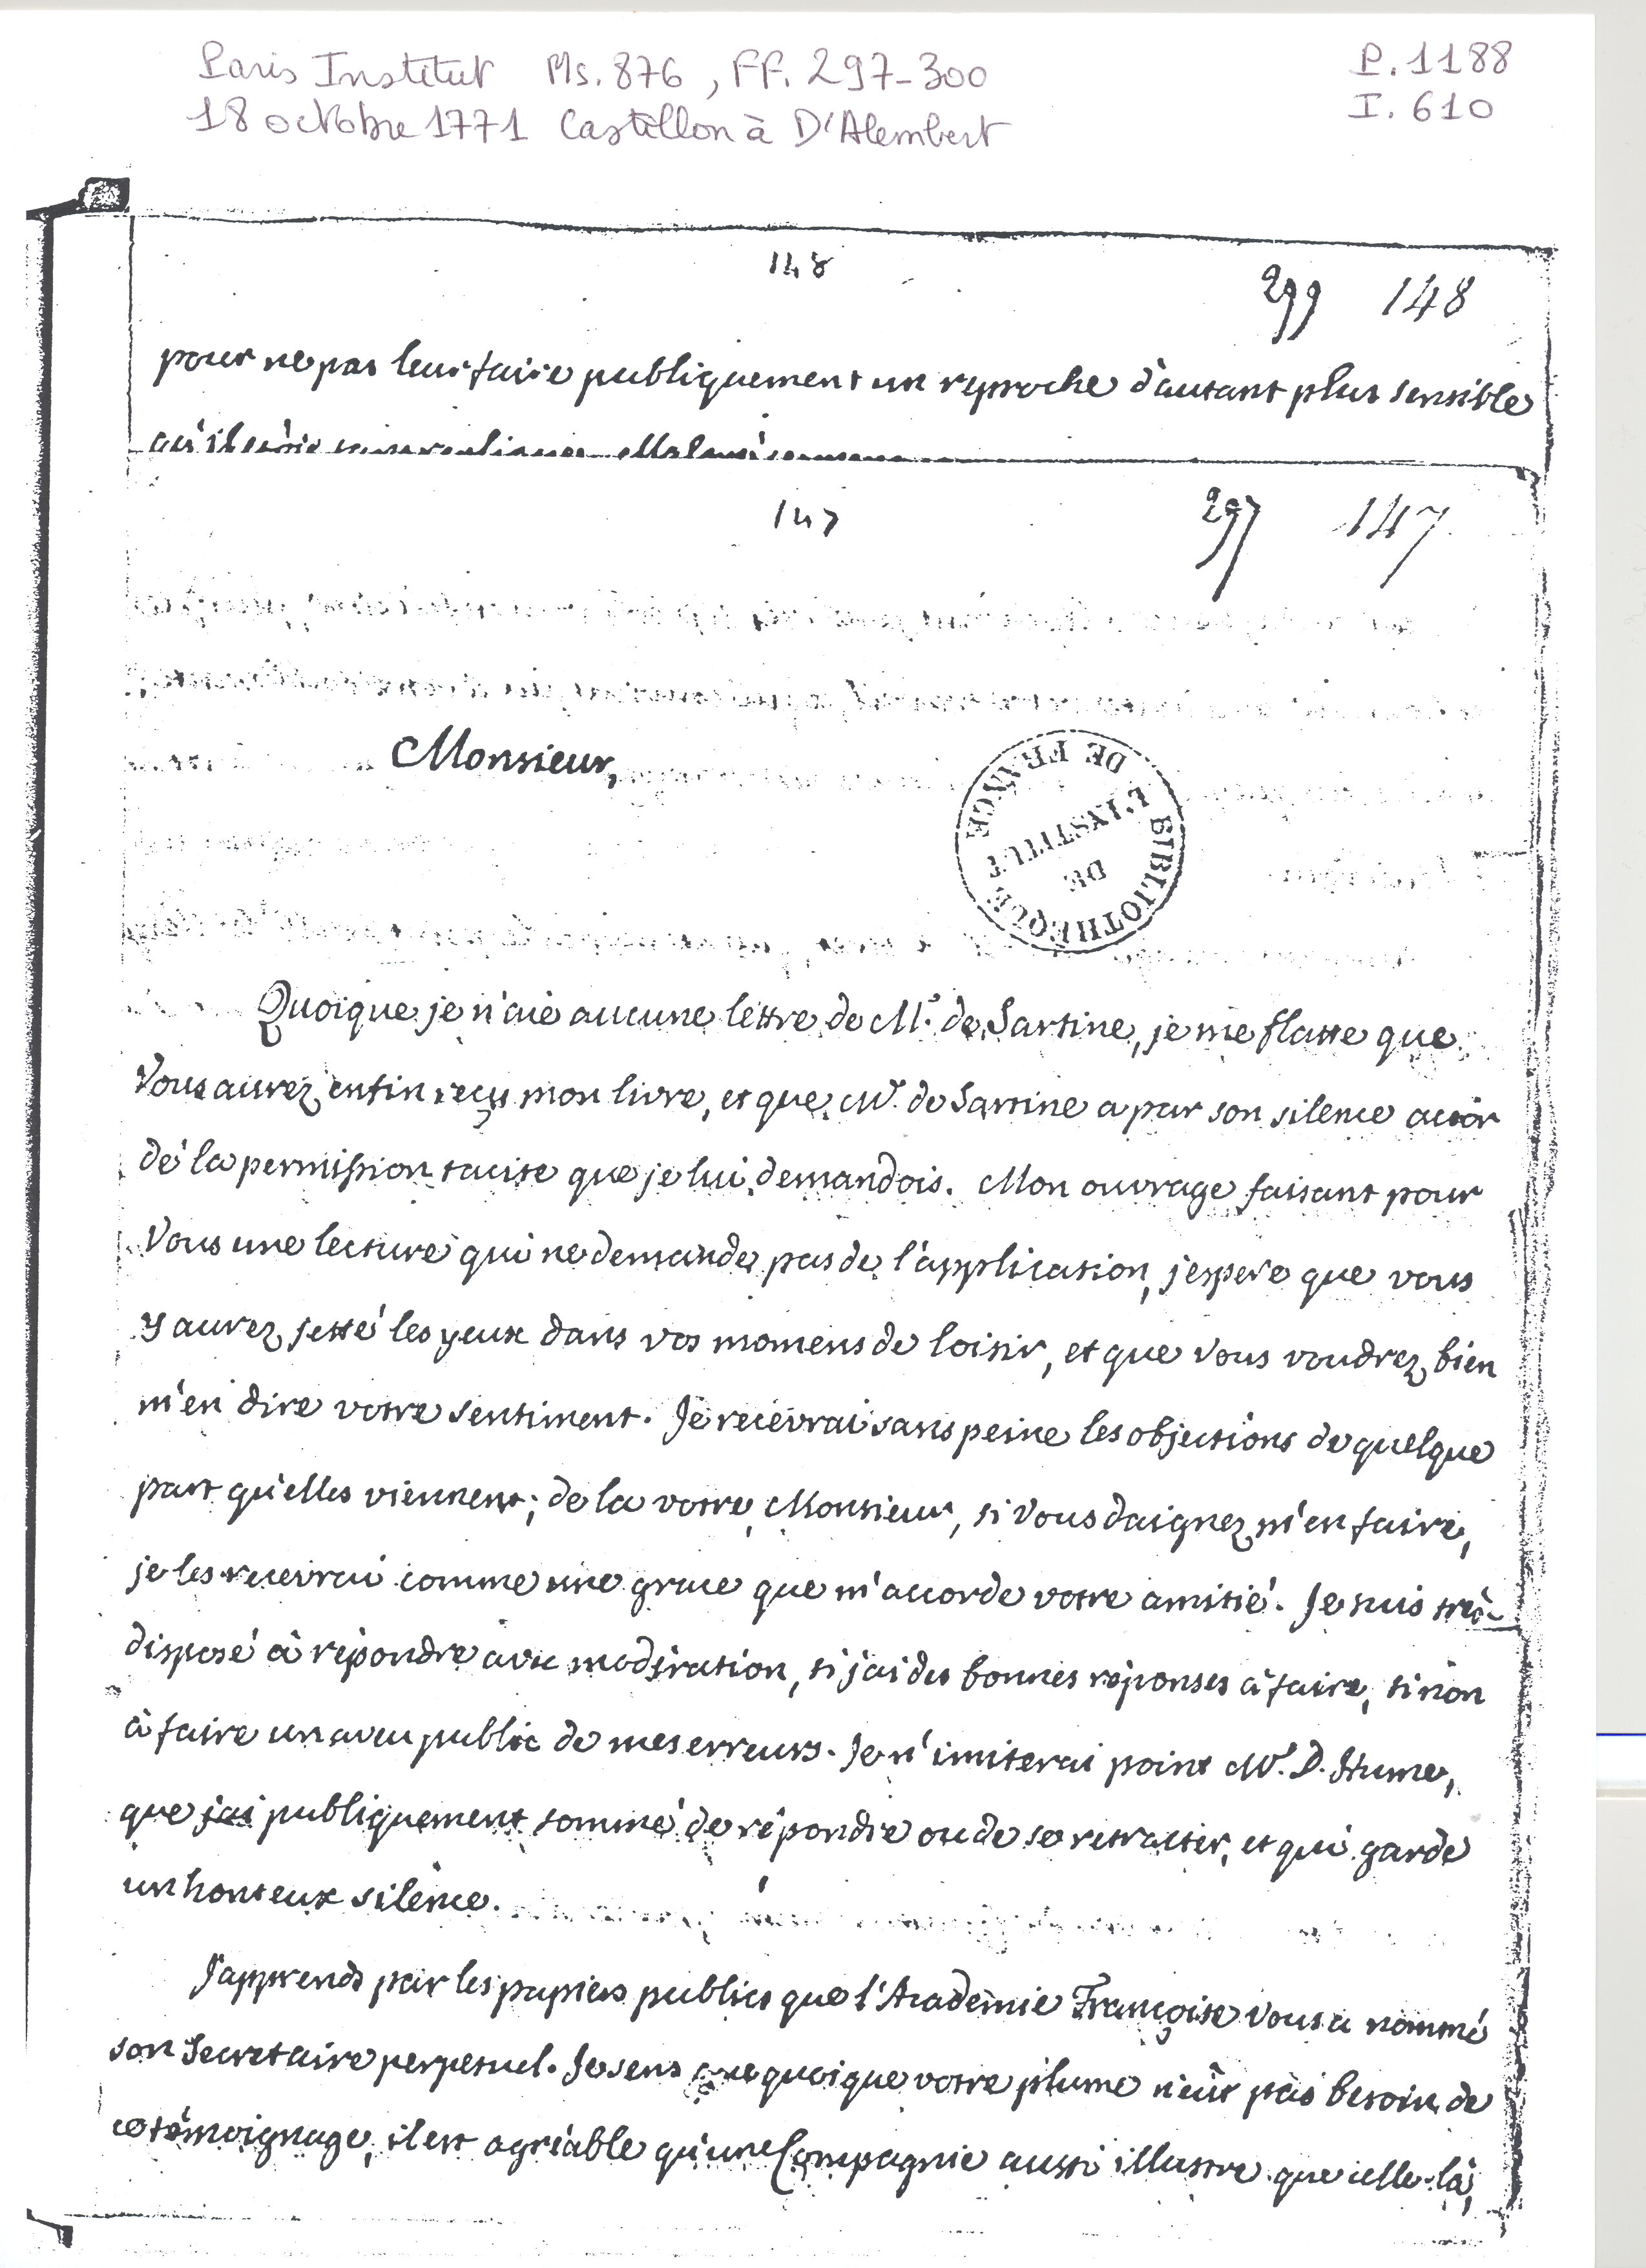 Paris Institut Ms. 876, FF. 297-300
P. 1188
18 octobre 1771 Castillon à D'Alembert
I. 610
148
299 148
pour ne pas leur faire publiquement un reproche d'autant plus sensible
147
297 147
Monsieur,
BIBLIOTHEQUE DE L'INSTITUT DE FRANCE
Quoique je n'aie aucune lettre de Mr. de Sartine, je me flatte que
Vous aurez enfin reçu mon livre, et que Mr. de Sartine a par son silence accor
dé la permission tacite que je lui demandois. Mon ouvrage faisant pour
Vous une lecture qui ne demande pas de l'application, j'espere que vous
y aurez jetté les yeux dans vos momens de loisir, et que vous voudrez bien
m'en dire votre sentiment. Je recevrai sans peine les objections de quelque
part qu'elles viennent; de la votre, Monsieur, si vous daignez m'en faire,
je les recevrai comme une grace que m'accorde votre amitié. Je suis très-
disposé à répondre avec modération, si j'ai des bonnes réponses à faire, sinon
à faire un aveu public de mes erreurs. Je n'imiterai point Mr. D. Hume,
que j'ai publiquement sommé de répondre ou de se retracter, et qui garde
un honteux silence.
J'apprends par les papiers publics que l'Academie Françoise vous a nommé
son Secretaire perpetuel. Je sens que quoique votre plume n'eût pas besoin de
ce témoignage, il est agréable qu'une Compagnie aussi illustre que celle-là,